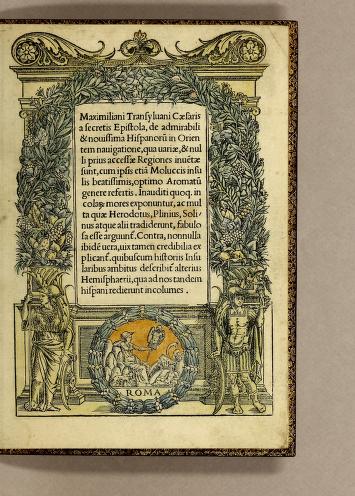 Maximiliani Transyluani Cæsaris
a secretis Epistola, de admirabili
& nouissima Hispanorū in Orien
tem nauigatione, qua uariæ, & nul
li prius accessæ Regiones inuētæ
sunt, cum ipsis etiā Moluccis insu
lis beatissimis, optimo Aromatū
genere refertis. Inauditi quoq. in
colaꝝ mores exponuntur, ac mul
ta quæ Herodotus, Plinius, Soli-
nus atque alii tradiderunt, fabulo
sa esse arguunt̃. Contra, nonnulla
ibidē uera, uix tamen credibilia ex
plicant̃. quibuscum historiis Insu
laribus ambitus describit̃ alterius
Hemisphaerii, qua ad nos tandem
hispani redierunt incolumes.
ROMA